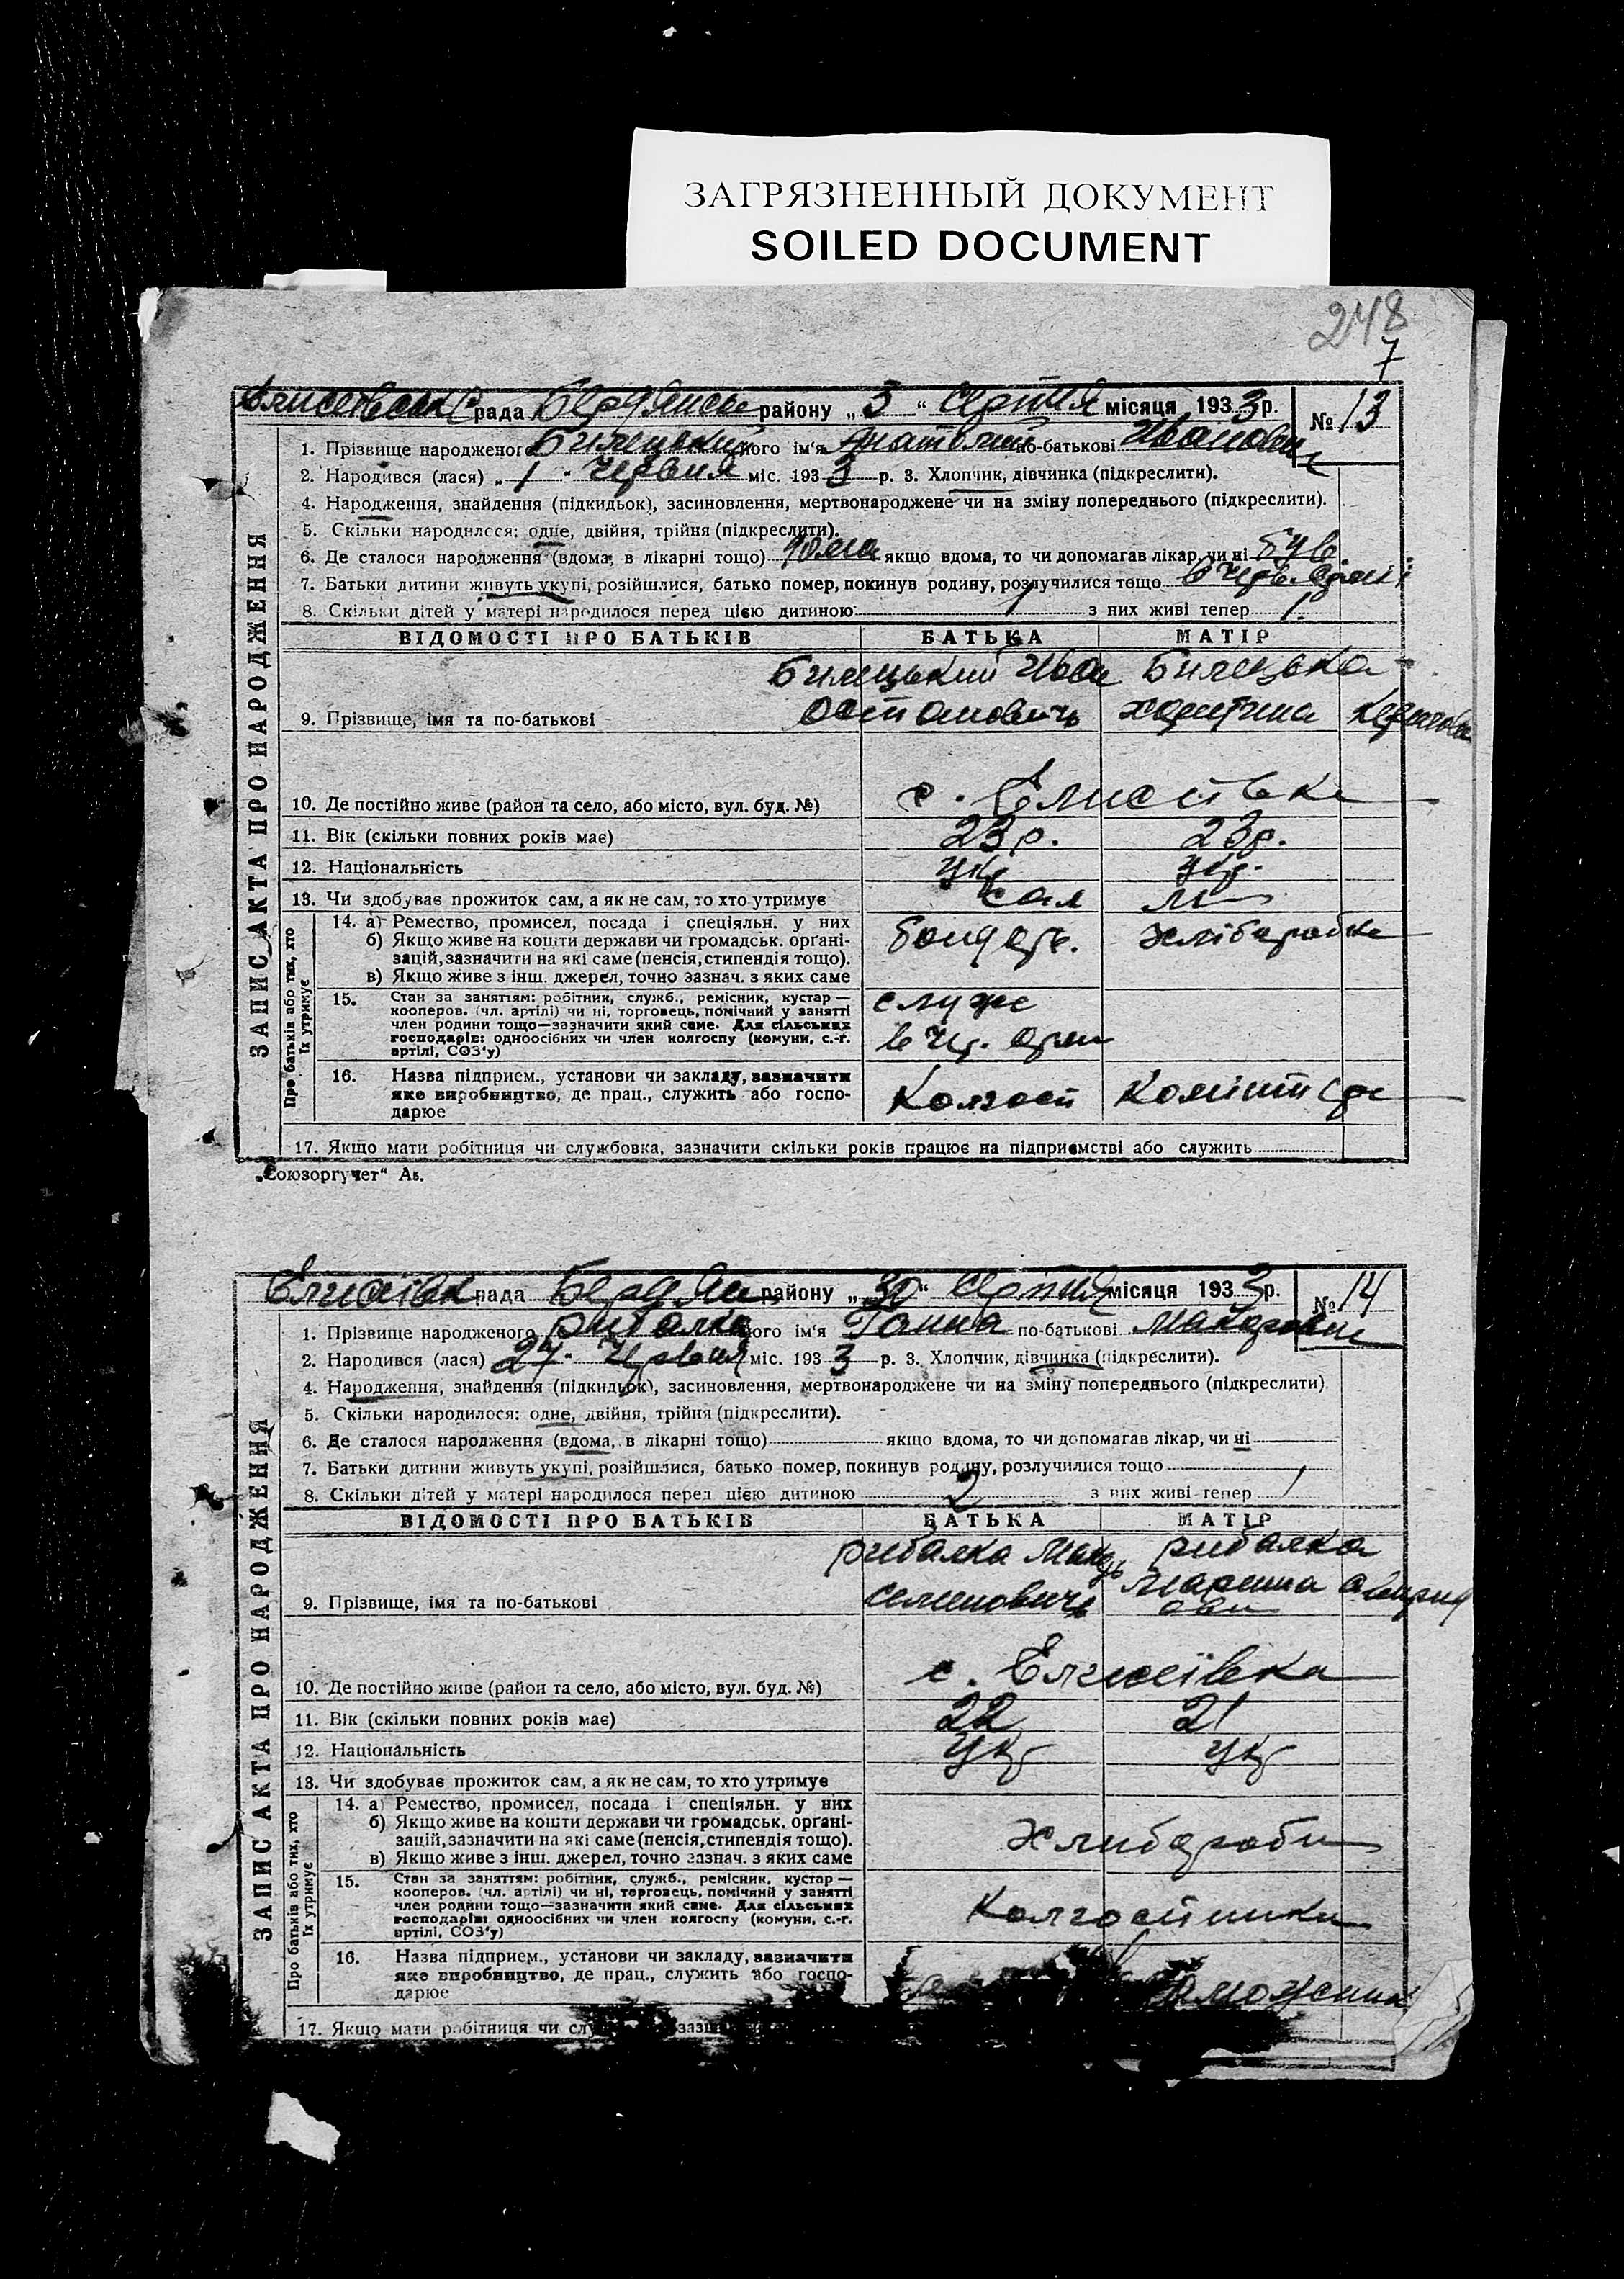 ЗАГРЯЗНЕННЫЙ ДОКУМЕНТ
SOILED DOCUMENT
248
7
рада Бердянськ району „3“ серпня місяця 1933 р. № 13
ЗАПИС АКТА ПРО НАРОДЖЕННЯ
1. Прізвище народженого Билецький його ім'я Анатолий по-батькові Иванович
2. Народився (лася) „1 - червня міс. 1933 р. 3. Хлопчик, дівчинка (підкреслити).
4. Народження, знайдення (підкидьок), засиновлення, мертвонароджене чи на зміну попереднього (підкреслити).
5. Скільки народилося: одне, двійня, трійня (підкреслити).
6. Де сталося народження (вдома, в лікарні тощо) якщо вдома, то чи допомагав лікар, чи ні був
7. Батьки дитини живуть укупі, розійшлися, батько помер, покинув родину, розлучилися тощо
8. Скільки дітей у матері народилося перед цією дитиною 1 з них живі тепер 1
ВІДОМОСТІ ПРО БАТЬКІВ БАТЬКА МАТІР
Билецький Иван Билецька
9. Прізвище, імя та по-батькові Остапович Харитина
10. Де постійно живе (район та село, або місто, вул. буд. №) с. Елисеївка
11. Вік (скільки повних років має) 23 р. 23 р.
12. Національність укр укр.
13. Чи здобуває прожиток сам, а як не сам, то хто утримує сам
Про батьків або тих, хто їх утримує
14. а) Ремество, промисел, посада і спеціяльн. у них
б) Якщо живе на кошти держави чи громадськ. органі-
зацій, зазначити на які саме (пенсія, стипендія тощо).
в) Якщо живе з інш. джерел, точно зазнач. з яких саме
бондарь. хлібаробка
15. Стан за заняттям: робітник, служб., ремісник, кустар —
кооперов. (чл. артілі) чи ні, торговець, помічний у занятті
член родини тощо—зазначити який саме. Для сільських
господарів: одноосібних чи член колгоспу (комуни, с.-г.
артілі, СОЗ'у)
служе
в Чр. Арм
16. Назва підприєм., установи чи закладу, зазначити
яке виробництво, де прац., служить або госпо-
дарює
Колгосп
17. Якщо мати робітниця чи службовка, зазначити скільки років працює на підприємстві або служить
„Союзоргучет“ Ак.
Елисеївськ рада Бердянськ району „30“ серпня місяця 1933 р. № 14
ЗАПИС АКТА ПРО НАРОДЖЕННЯ
1. Прізвище народженого Рибалка його ім'я Ганна по-батькові
2. Народився (лася) 27 - червня міс. 1933 р. 3. Хлопчик, дівчинка (підкреслити).
4. Народження, знайдення (підкидьок), засиновлення, мертвонароджене чи на зміну попереднього (підкреслити)
5. Скільки народилося: одне, двійня, трійня (підкреслити).
6. Де сталося народження (вдома, в лікарні тощо) якщо вдома, то чи допомагав лікар, чи ні
7. Батьки дитини живуть укупі, розійшлися, батько помер, покинув родину, розлучилися тощо
8. Скільки дітей у матері народилося перед цією дитиною 2 з них живі тепер 1
ВІДОМОСТІ ПРО БАТЬКІВ БАТЬКА МАТІР
Рибалка Макарь Рибалка
9. Прізвище, імя та по-батькові Семенович Марина
10. Де постійно живе (район та село, або місто, вул. буд. №) с. Елисеївка
11. Вік (скільки повних років має) 22 21
12. Національність укр укр
13. Чи здобуває прожиток сам, а як не сам, то хто утримує
Про батьків або тих, хто їх утримує
14. а) Ремество, промисел, посада і спеціяльн. у них
б) Якщо живе на кошти держави чи громадськ. органі-
зацій, зазначити на які саме (пенсія, стипендія тощо).
в) Якщо живе з інш. джерел, точно зазнач. з яких саме
хлибароби
15. Стан за заняттям: робітник, служб., ремісник, кустар —
кооперов. (чл. артілі) чи ні, торговець, помічний у занятті
член родини тощо—зазначити який саме. Для сільських
господарів: одноосібних чи член колгоспу (комуни, с.-г.
артілі, СОЗ'у)
Колгоспники
16. Назва підприєм., установи чи закладу, зазначити
яке виробництво, де прац., служить або госпо-
дарює
17. Якщо мати робітниця чи